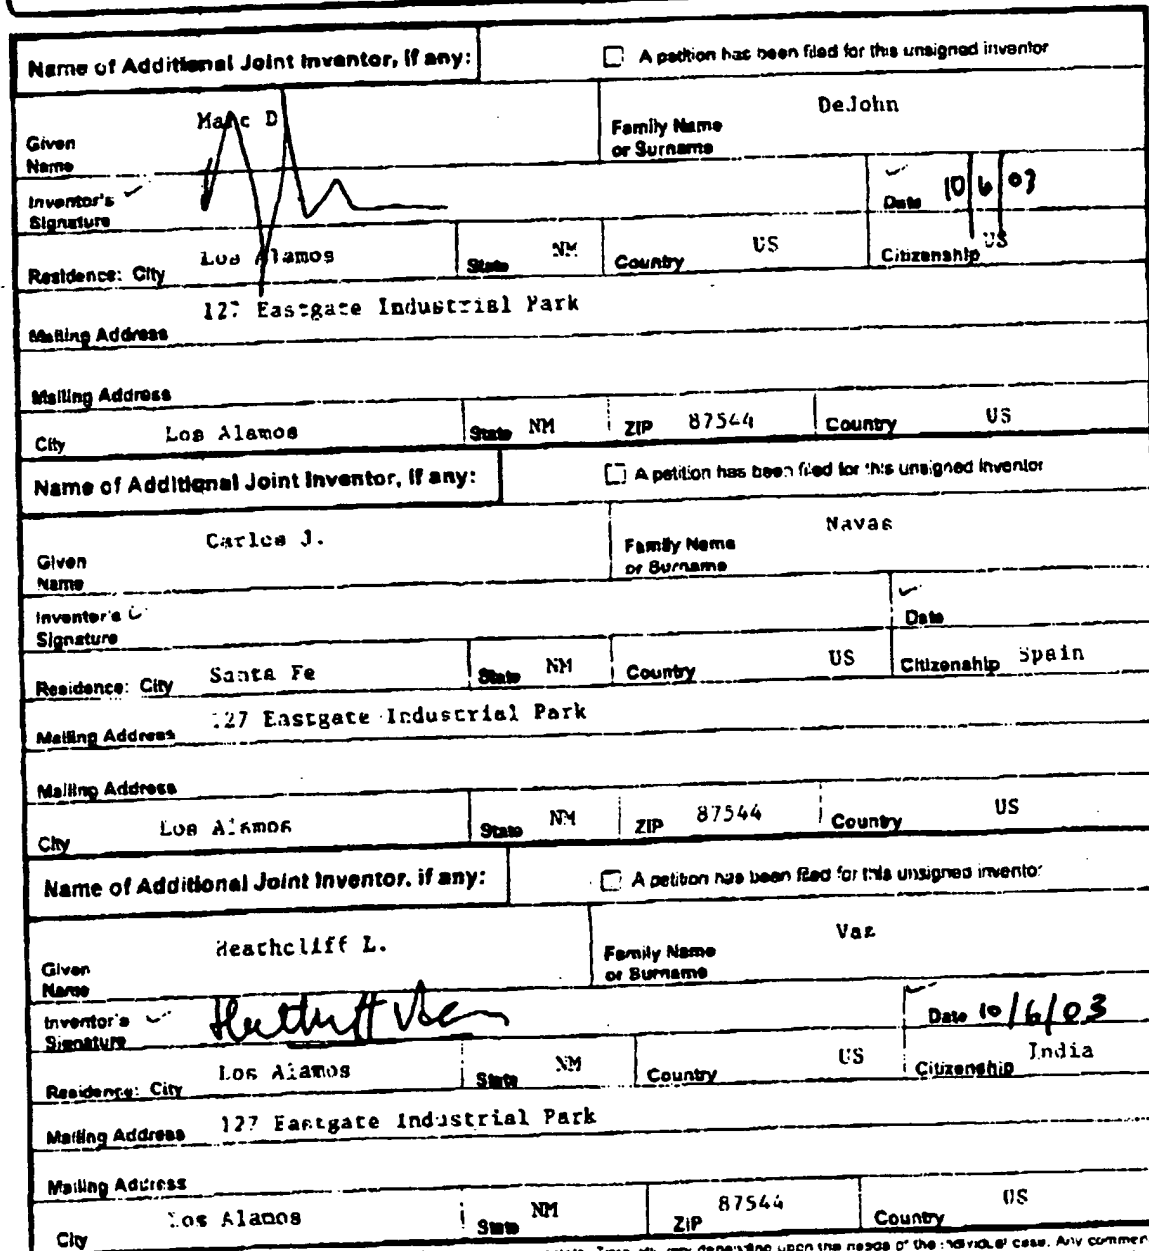 Name of Additional Joint Inventor, if any: A petition has been filed for this unsigned inventor
Given Name Marc D Family Name or Surname DeJohn
Inventor's Signature Date 10/6/03
Residence: City Los Alamos State NM Country US Citizenship US
Mailing Address 127 Eastgate Industrial Park
Mailing Address
City Los Alamos State NM ZIP 87544 Country US
Name of Additional Joint Inventor, if any: A petition has been filed for this unsigned inventor
Given Name Carlos J. Family Name or Surname Navas
Inventor's Signature Date
Residence: City Santa Fe State NM Country US Citizenship Spain
Mailing Address 127 Eastgate Industrial Park
Mailing Address
City Los Alamos State NM ZIP 87544 Country US
Name of Additional Joint Inventor, if any: A petition has been filed for this unsigned inventor
Given Name Heathcliff L. Family Name or Surname Vaz
Inventor's Signature Heathcliff Vaz Date 10/6/03
Residence: City Los Alamos State NM Country US Citizenship India
Mailing Address 127 Eastgate Industrial Park
Mailing Address
City Los Alamos State NM ZIP 87544 Country US
depending upon the needs of the individual case. Any commen